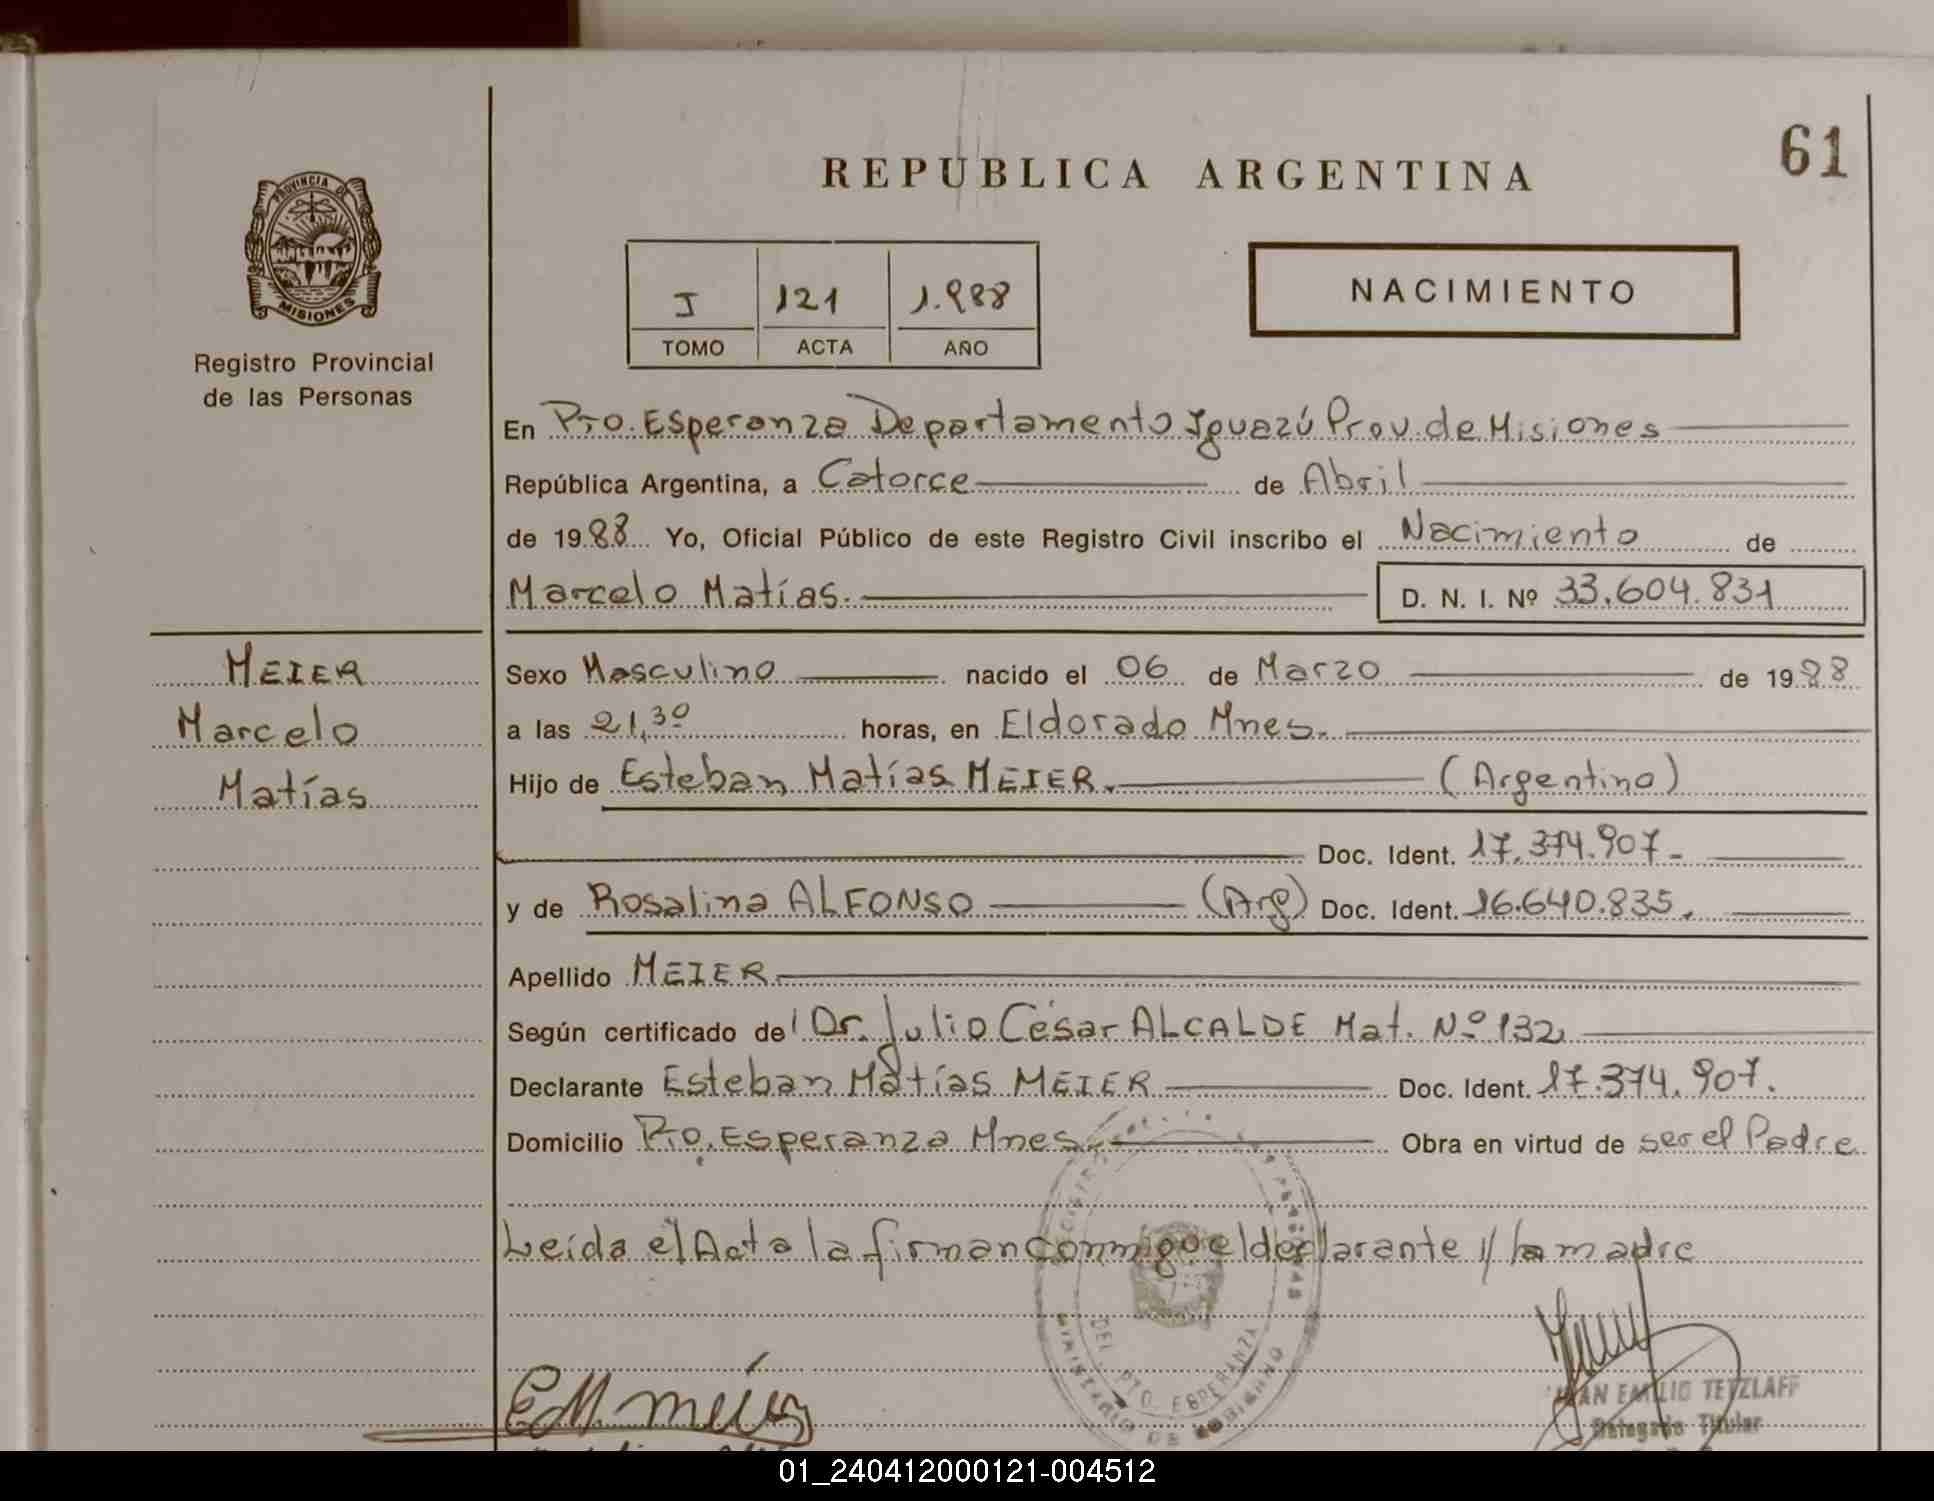 61
REPUBLICA ARGENTINA
PROVINCIA DE
MISIONES
Registro Provincial
de las Personas
I 121 1.988
TOMO ACTA AÑO
NACIMIENTO
En Pto. Esperanza Departamento Iguazú Prov. de Misiones
República Argentina, a Catorce de Abril
de 1988 Yo, Oficial Público de este Registro Civil inscribo el Nacimiento de
Marcelo Matías. D. N. I. Nº 33.604.831
MEIER
Marcelo
Matías
Sexo Masculino nacido el 06 de Marzo de 1988
a las 21,30 horas, en Eldorado Mnes.
Hijo de Esteban Matías MEIER. (Argentino)
Doc. Ident. 17.374.907.-
y de Rosalina ALFONSO (Arg) Doc. Ident. 16.640.835.
Apellido MEIER
Según certificado del Dr. Julio César ALCALDE Mat. Nº 132
Declarante Esteban Matías MEIER Doc. Ident. 17.374.907.
Domicilio Pto. Esperanza Mnes. Obra en virtud de ser el Padre
Leída el Acta la firman conmigo el declarante y la madre
DEL PTO. ESPERANZA
MINISTERIO DE GOBIERNO
JUAN EMILIO TETZLAFF
Delegado Titular
01_240412000121-004512